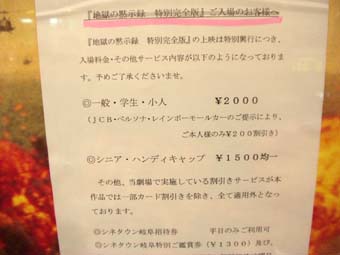 『地獄の黙示録　特別完全版』ご入場のお客様へ
『地獄の黙示録　特別完全版』の上映は特別興行につき、
入場料金・その他サービス内容が以下のようになっておりま
す。予めご了承くださいませ。
◎一般・学生・小人　￥２０００
（ＪＣＢ・ペルソナ・レインボーモールカーのご提示により、
ご本人様のみ￥200割引き）
◎シニア・ハンディキャップ　￥１５００均一
その他、当劇場で実施している割引きサービスが本
作品では一部カード割引きを除き、全て適用外となっ
ております。
◎シネタウン岐阜招待券　平日のみご利用可
◎シネタウン岐阜特別ご鑑賞券（￥１３００）及び、